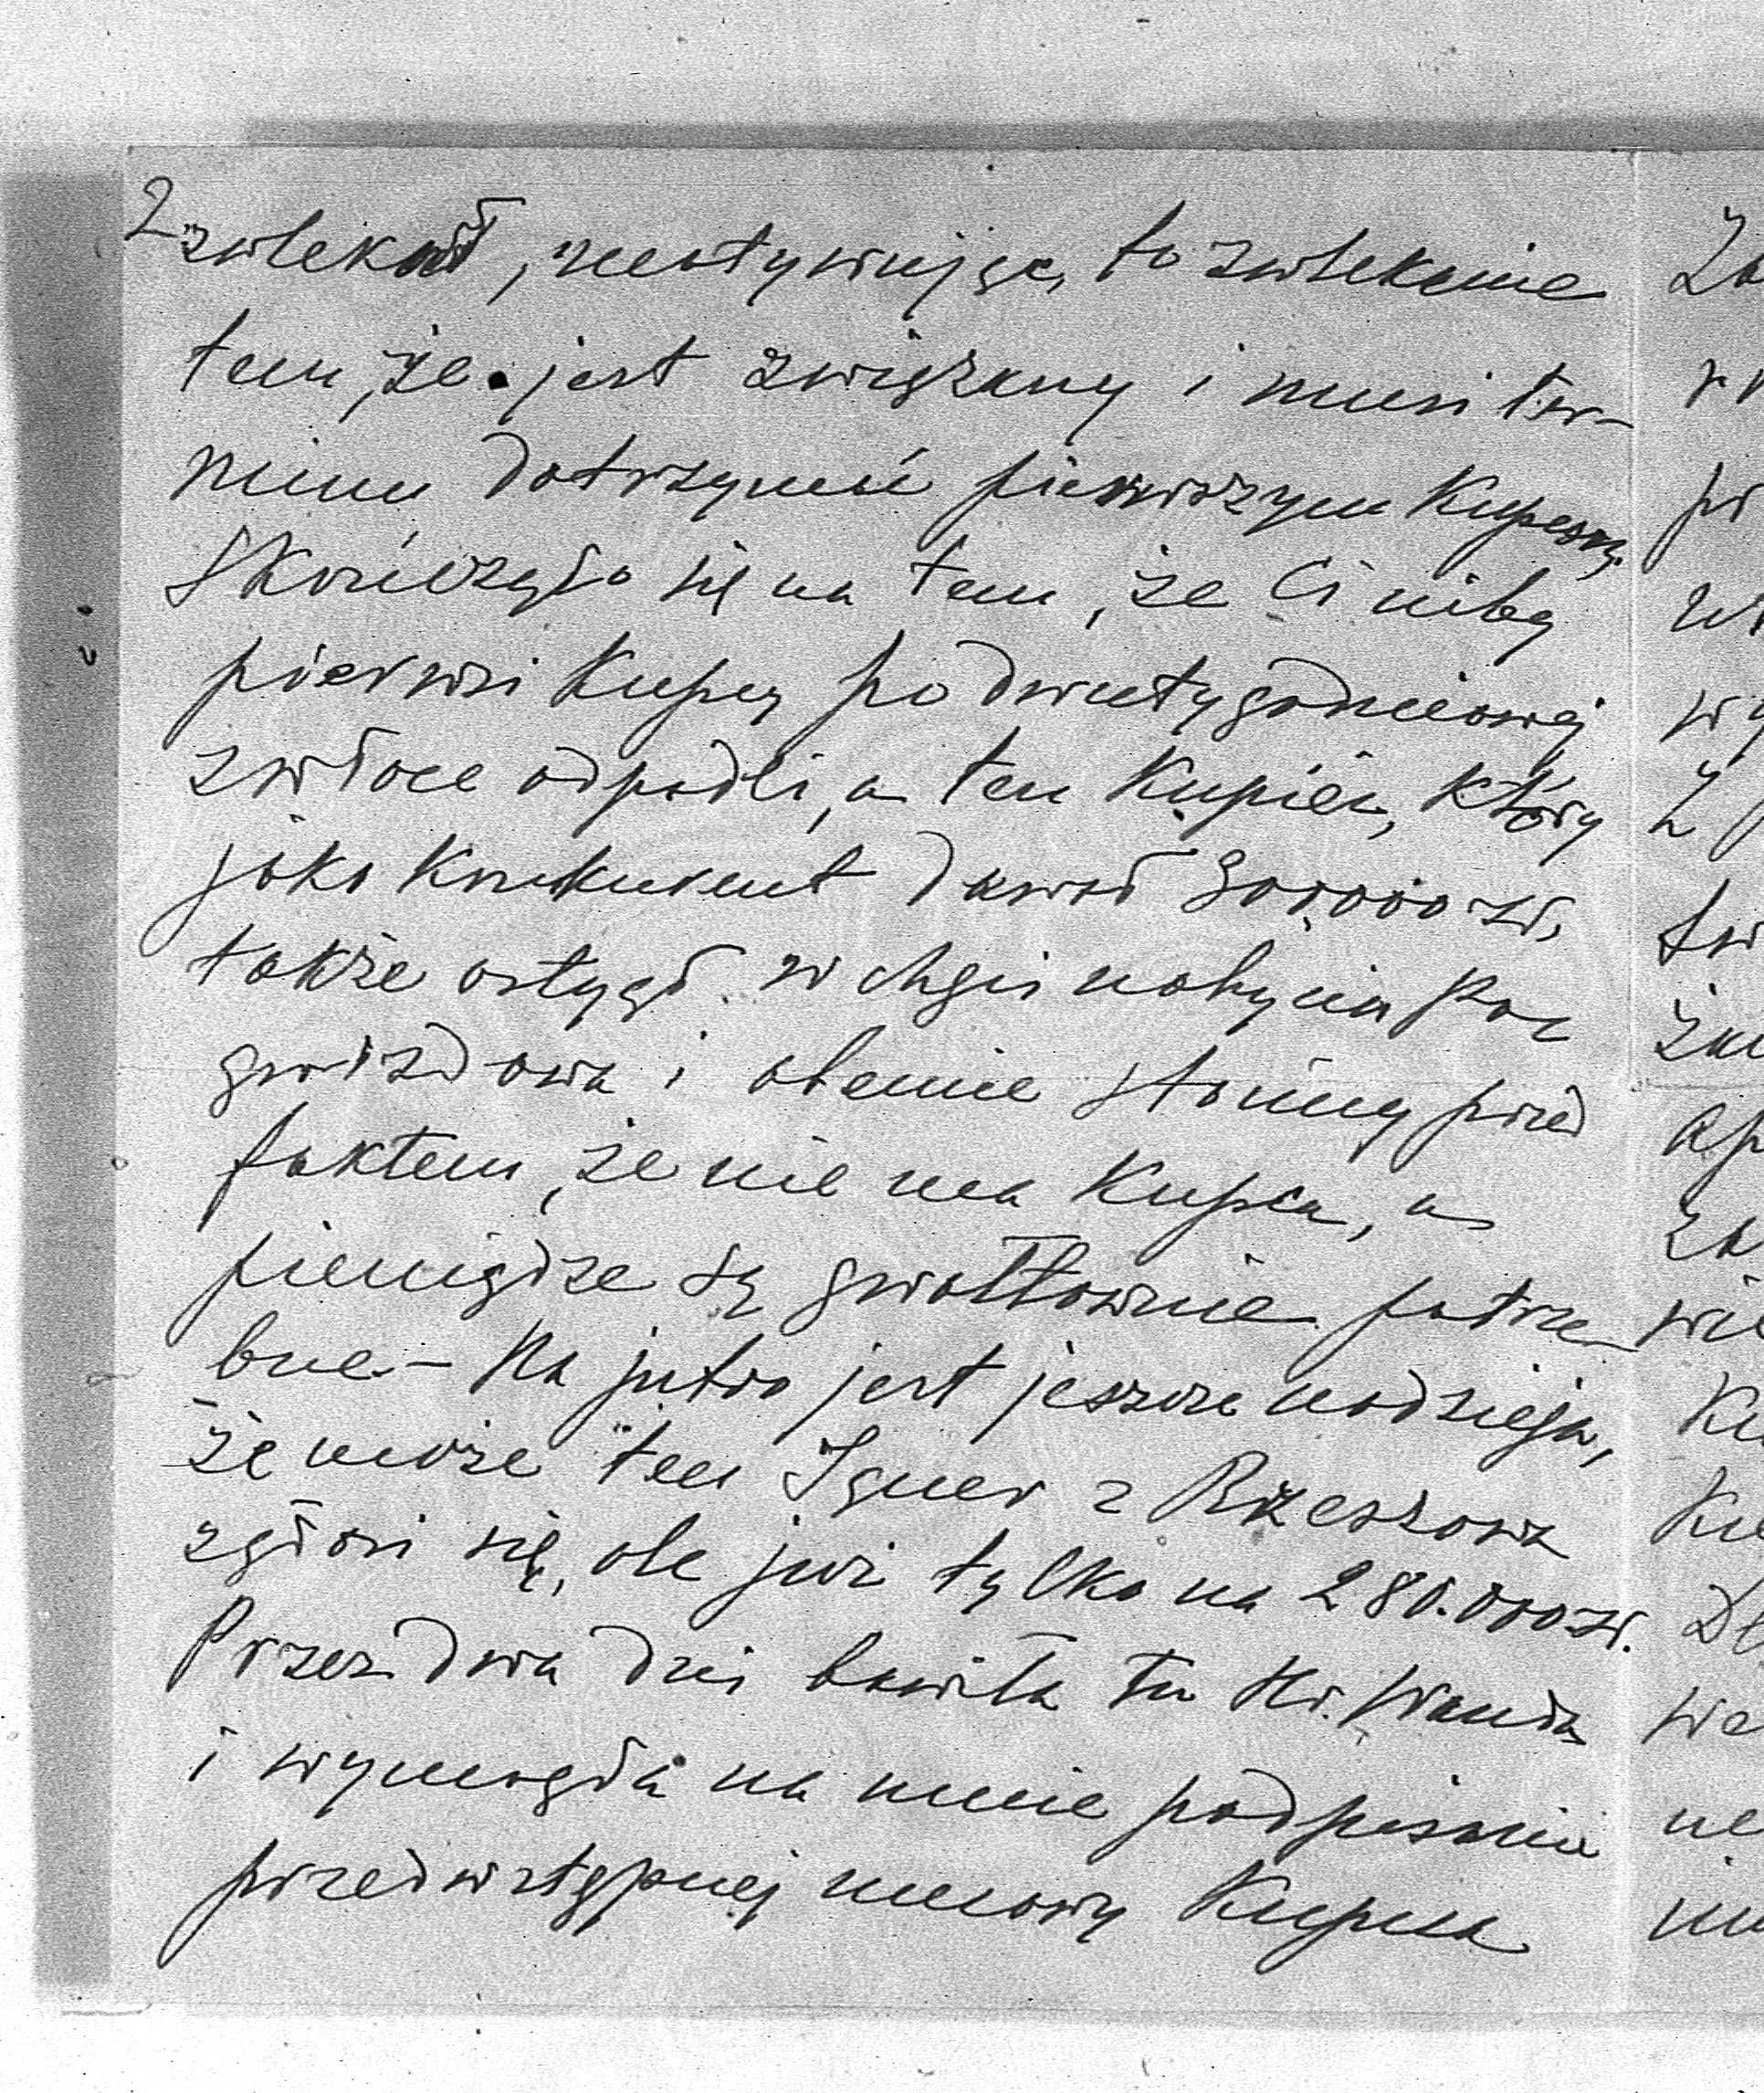 2
zwlekał, motywując to zwlekanie
tem, że jest związany i musi ter-
minu dotrzymać pierwszym kupcom.
Skończyło się na tem, że Ci niby
pierwsi kupcy po dwutygodniowej
zwłoce odpadli, a ten kupiec, który
jako konkurent dawał 300000 zł,
także ostygł w chęci nabycia
gwizdowa i obecnie stoimy przed
faktem, że nie ma kupca, a
pieniądze są gwałtownie potrze-
bne - Na jutro jest jeszcze nadzieja,
że może ten Igner z Rzeszowa
zgłosi się, ale już tylko na 280.000 zł.
Przez dwa dni bawiła tu Hr. Wanda
i wymogła na mnie podpisanie
przedwstępnej umowy kupna